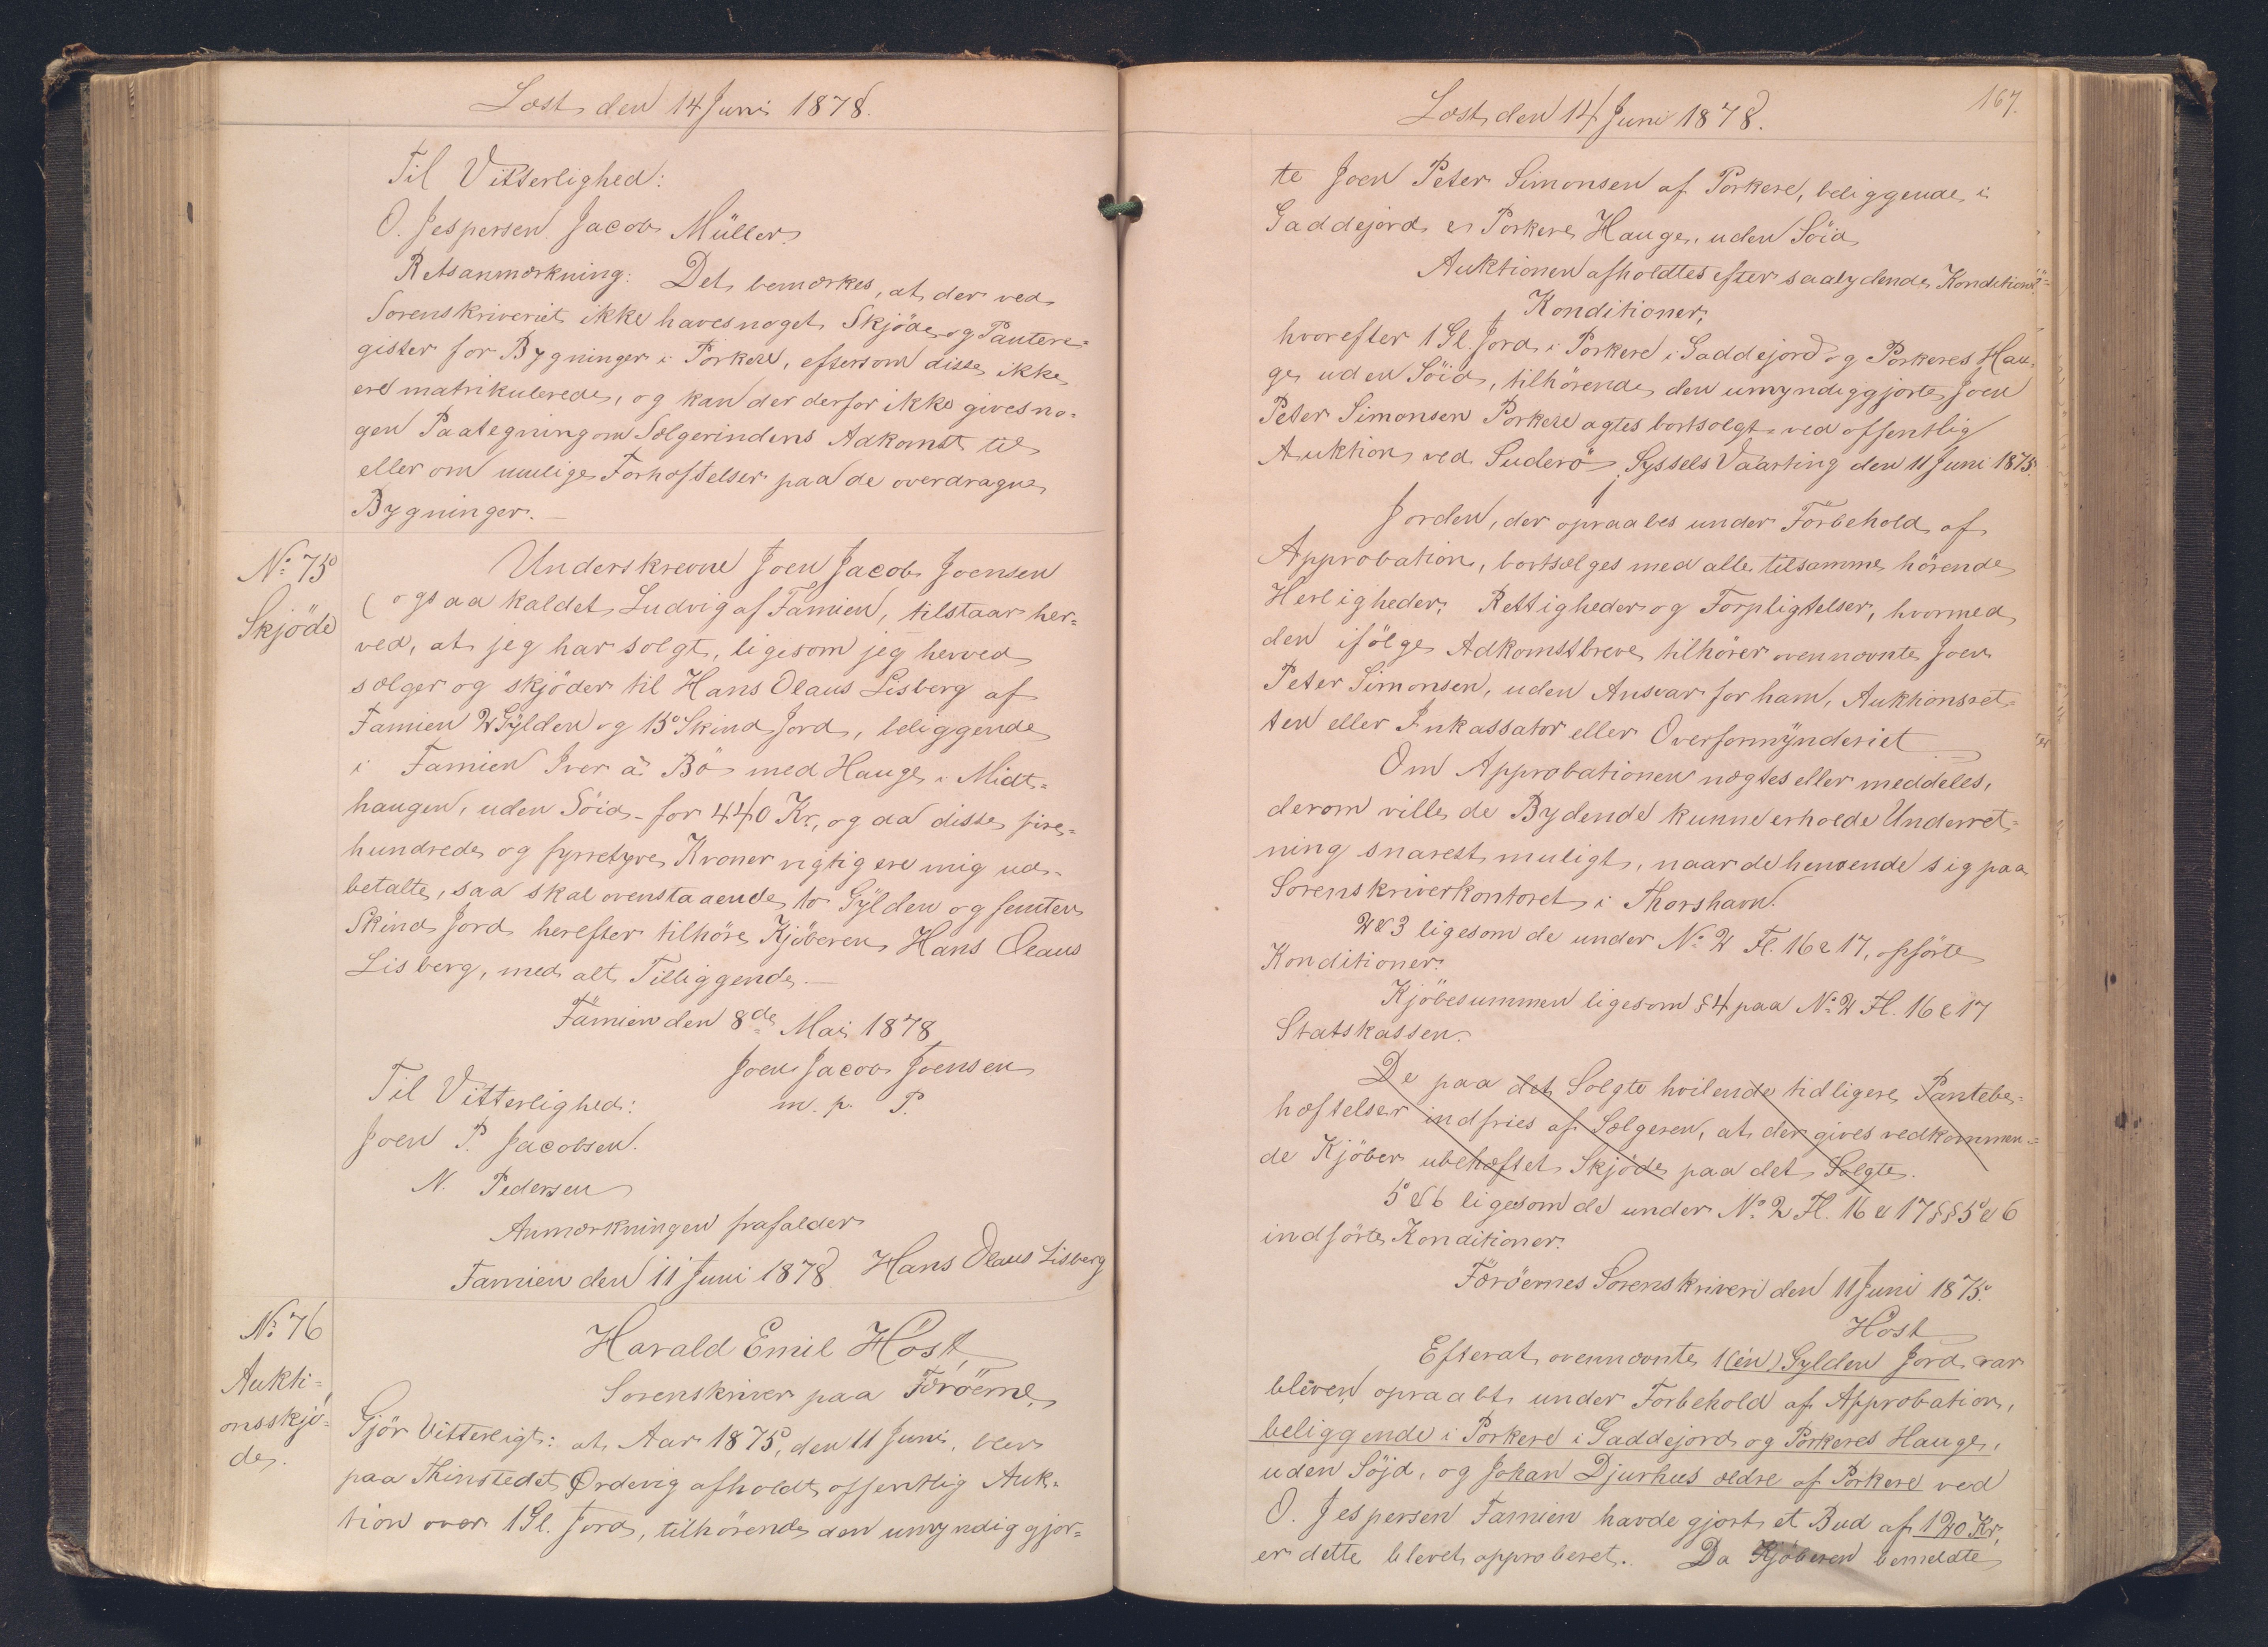 Læst den 14 Juni 1878.
Til Vitterlighed:
O. Jespersen. Jacob Müller.
Retsanmærkning: Det bemærkes, at der ved
Sorenskriveriet ikke haves noget Skjöde og Pantere-
gister for Bygninger i Porkere, eftersom disse ikke
ere matrikulerede, og kan der derfor ikke gives no-
gen Paategning om Sælgerindens Adkomst til
eller om mulige Forhæftelser paa de overdragne
Bygninger. —
No. 75
Skjöde
Underskrevne Joen Jacob Joensen
(ogsaa kaldet Ludvig af Famien, tilstaar her-
ved, at jeg har solgt, ligesom jeg herved
sælger og skjöder til Hans Olaus Lisberg af
Famien 2 Gylden og 15 Skind Jord, beliggende
i Famien Iver à Bö med Hauge i Midt-
haugen, uden Söid - for 440 Kr., og da disse fire-
hundrede og fyrretyve Kroner rigtig ere mig ud-
betalte, saa skal ovenstaaende to Gylden og femten
Skind Jord herefter tilhöre Kjöberen Hans Olaus
Lisberg, med alt Tilliggende. —
Famien den 8de Mai 1878
Joen Jacob Joensen
m. p. P.
Til Vitterlighed:
Joen P. Jacobsen.
N. Pedersen
Anmærkningen frafalder
Famien den 11 Juni 1878 Hans Olaus Lisberg
No. 76
Aukti-
onsskjö-
de.
Harald Emil Höst
Sorenskriver paa Færöerne,
Gjör Vitterligt: at Aar 1875, den 11 Juni, blev
paa Thinstedet Ørdevig afholdt offentlig Auk-
tion over 1 Gl. Jord, tilhörende den umyndiggjor-
167.
Læst den 14 Juni 1878.
te Joen Peter Simonsen af Porkere, beliggende i
Gaddejord er Porkere Hauge, uden Söid,
Auktionen afholdtes efter saalydende Konditioner:
Konditioner,
hvorefter 1 Gl. Jord i Porkere i Gaddejord og Porkeres Hau-
ge uden Söid, tilhörende den umyndiggjorte Joen
Peter Simonsen Porkere agtes bortsolgt ved offentlig
Auktion ved Suderö Syssels Vaarting den 11 Juni 1875.
Jorden, der opraabes under Forbehold af
Approbation, bortsælges med alle tilsamme hörende
Herligheder, Rettigheder og Forpligtelser, hvormed
den ifölge Adkomstbreve tilhörer ovennævnte Joen
Peter Simonsen, uden Ansvar for ham, Auktionsret-
ten eller Inkassator eller Overformynderiet
Om Approbationen nægtes eller meddeles,
derom ville de Bydende kunne erholde Underret-
ning snarest muligt, naar de henvende sig paa
Sorenskriverkontoret i Thorshavn.
2 & 3 ligesom de under No. 2 Fl. 16 & 17, opförte
Konditioner.
Kjöbesummen ligesom § 4 paa No. 2 Fl. 16 & 17
Statskassen.
De paa det Solgte hvilende tidligere Pantebe-
hæftelser indfries af Sælgeren, at der gives vedkommen-
de Kjöber ubehæftet Skjöde paa det Solgte.
5 & 6 ligesom de under No. 2 Fl. 16 & 17 §§ 5 & 6
indförte Konditioner.
Færöernes Sorenskriveri den 11 Juni 1875.
Höst
Efterat ovennævnte 1 (én) Gylden Jord var
bleven opraabt under Forbehold af Approbation,
beliggende i Porkere i Gaddejord og Porkeres Hauge,
uden Söjd, og Johan Djurhus ældre af Porkere ved
O. Jespersen Famien havde gjort et Bud af 120 Kr,
er dette blevet approberet. Da Kjöberen bemeldte